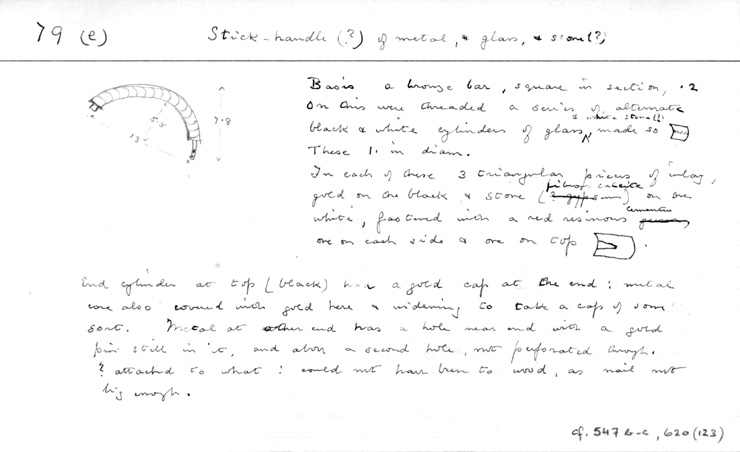 79 (e)
Stick-handle (?) of metal, & glass, & stone (?)
Basis a bronze bar, square in section, .2
On this were threaded a series of alternate
& white stone (?)
black & white cylinders of glass ^ made so
These 1. in diam.
In each of these 3 triangular pieces of inlay,
fibrous calcite
gold on the black & stone (? gypsum) on the
white, fastened with a red resinous cement
one on each side & one on top .
5.5
7.8
13.
End cylinder at top (black) has a gold cap at the end : metal
core also covered with gold here & widening to take a cap of some
sort. Metal at other end has a hole near end with a gold
pin still in it, and above a second hole, not perforated through.
? attached to what : could not have been to wood, as nail not
big enough.
cf. 547 b-c, 620 (123)